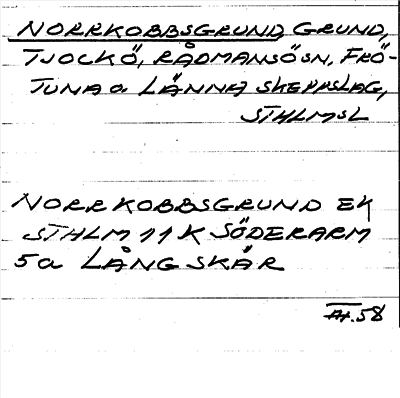 NORRKOBBSGRUND, GRUND,
TJOCKÖ, RÅDMANSÖSN, FRÖ-
TUNA o LÄNNA SKEPPSLAG,
STHLMSL
NORRKOBBSGRUND EK
STHLM 11 K SÖDERARM
5a LÅNGSKÄR
58